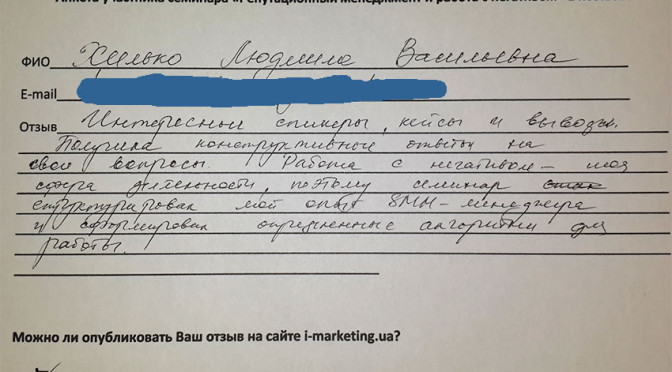 Анкета участника семинара «Репутационный менеджмент и работа с негативом»
ФИО Хилько Людмила Васильевна
E-mail
Отзыв Интересные спикеры, кейсы и выводы.
Получила конструктивные ответы на
свои вопросы. Работа с негативом – моя
сфера деятельности, поэтому семинар
структурировал мой опыт SMM-менеджера
и сформировал определенные алгоритмы для
работы.
Можно ли опубликовать Ваш отзыв на сайте i-marketing.ua?